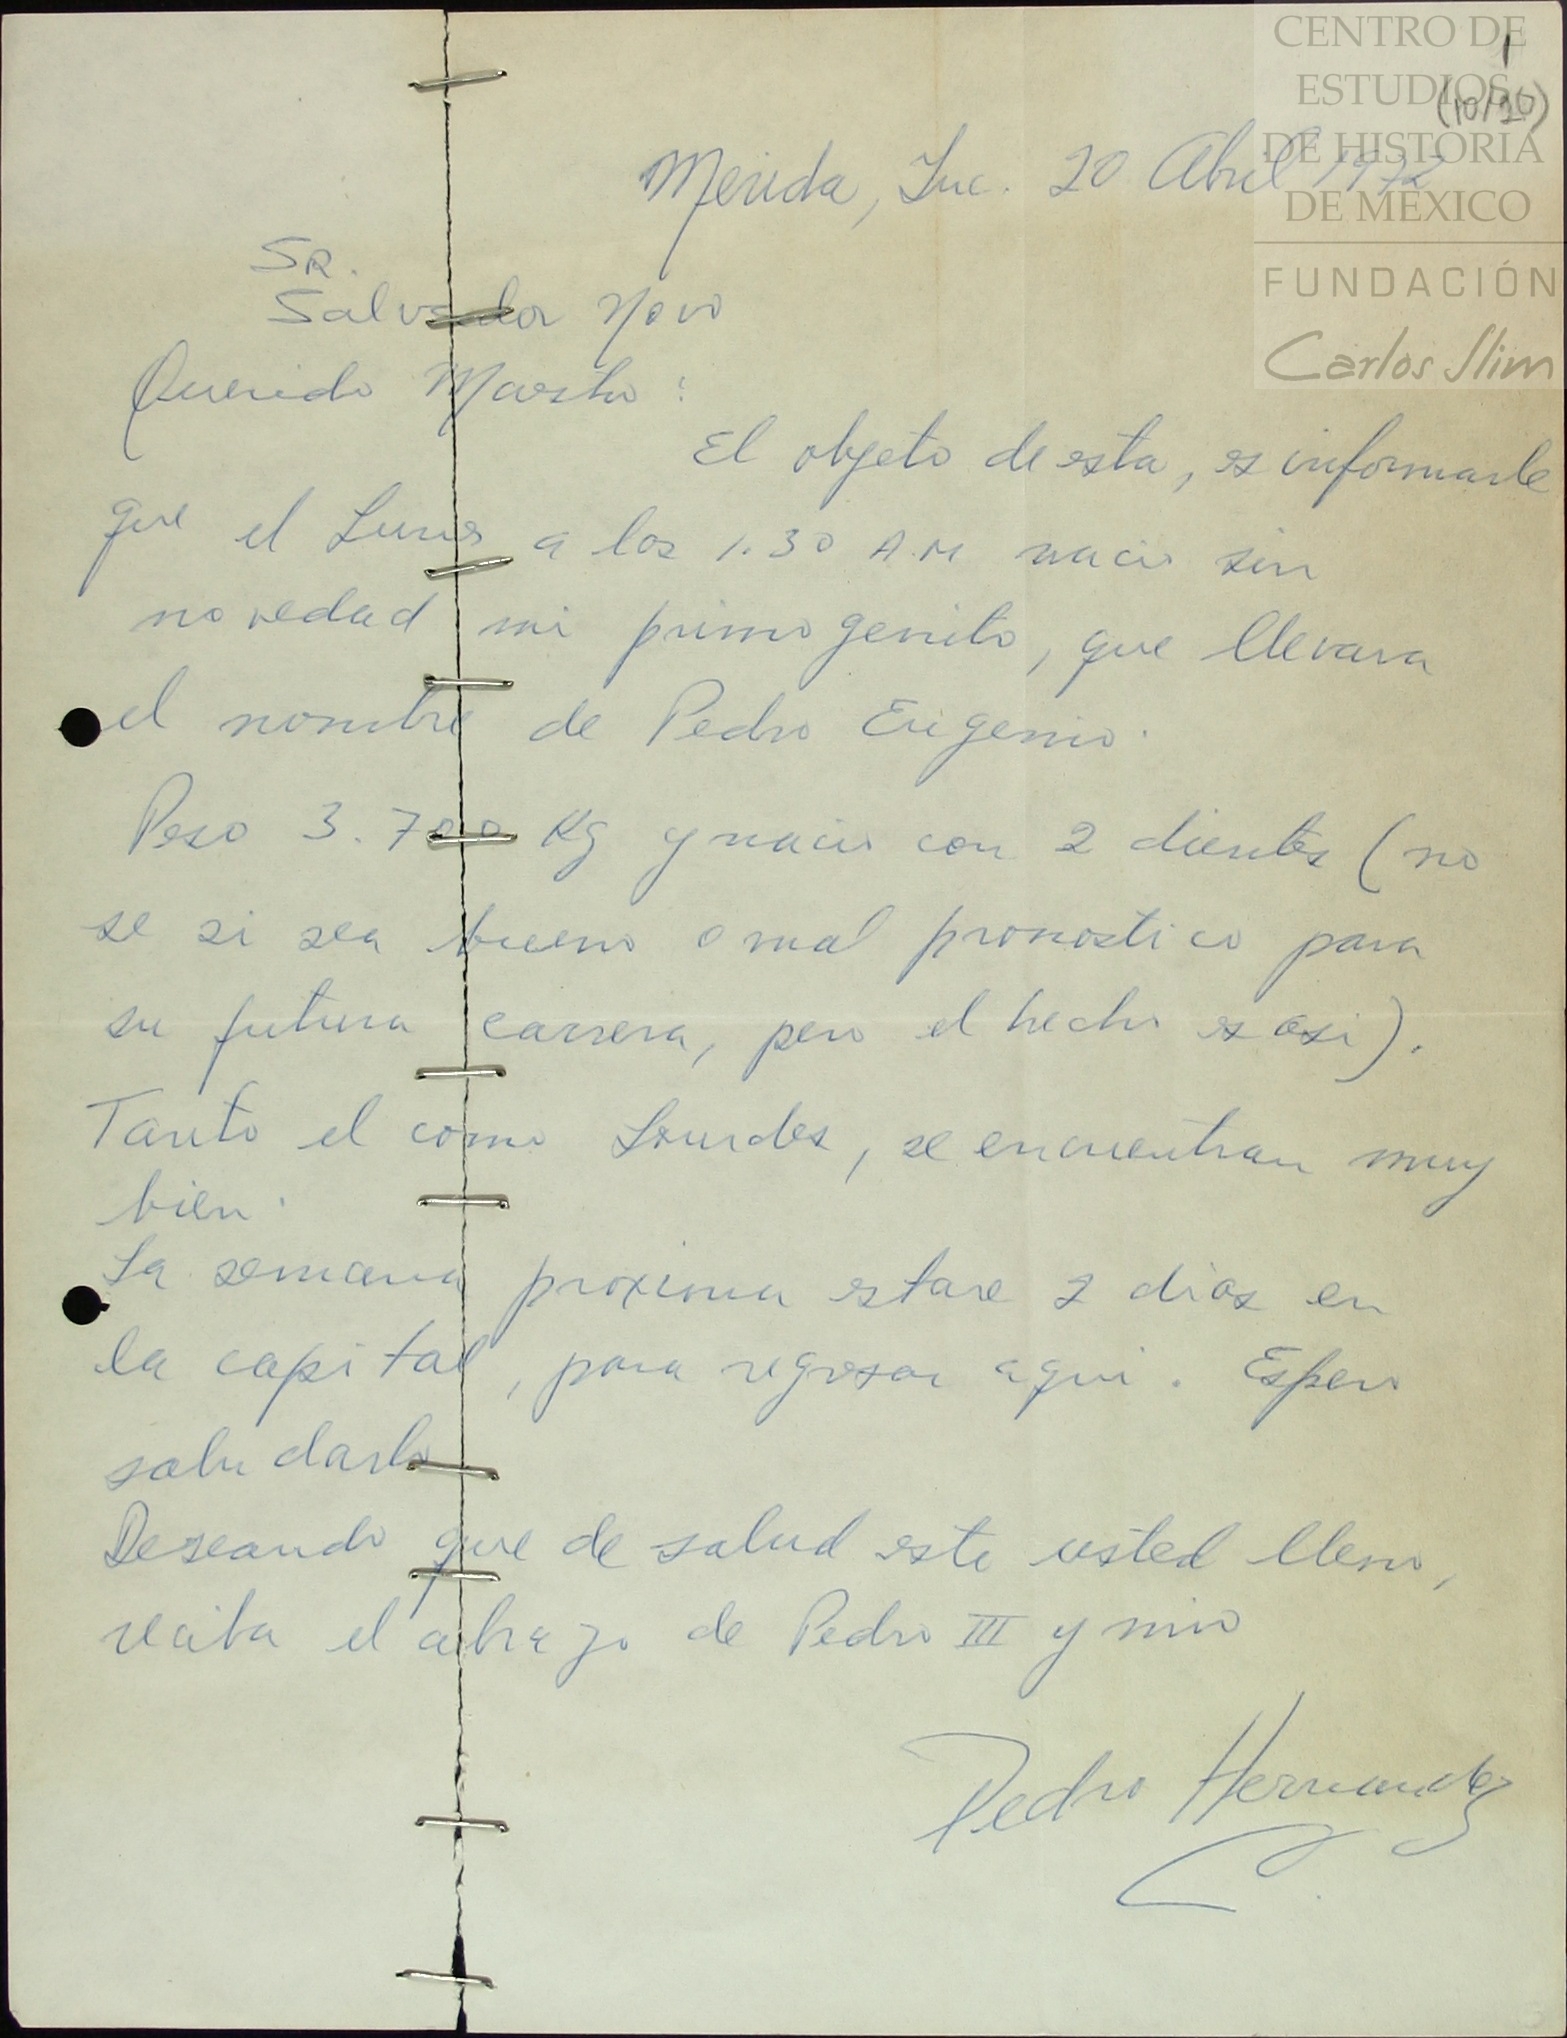 CENTRO DE
ESTUDIOS
DE HISTORIA
DE MÉXICO
FUNDACIÓN
Carlos Slim
1
(10/20)
Merida, Yuc. 20 Abril 1972
SR.
Salvador Novo
Querido Maestro:
El objeto de esta, es informarle
que el Lunes a las 1.30 A.M nacio sin
novedad mi primogenito, que llevara
el nombre de Pedro Eugenio.
Peso 3.700 Kg y nacio con 2 dientes (no
se si sea bueno o mal pronostico para
su futura carrera, pero el hecho es asi).
Tanto el como Lourdes, se encuentran muy
bien.
La semana proxima estare 2 dias en
la capital, para regresar aqui. Espero
saludarlo
Deseando que de salud este usted lleno,
reciba el abrazo de Pedro III y mio
Pedro Hernandez